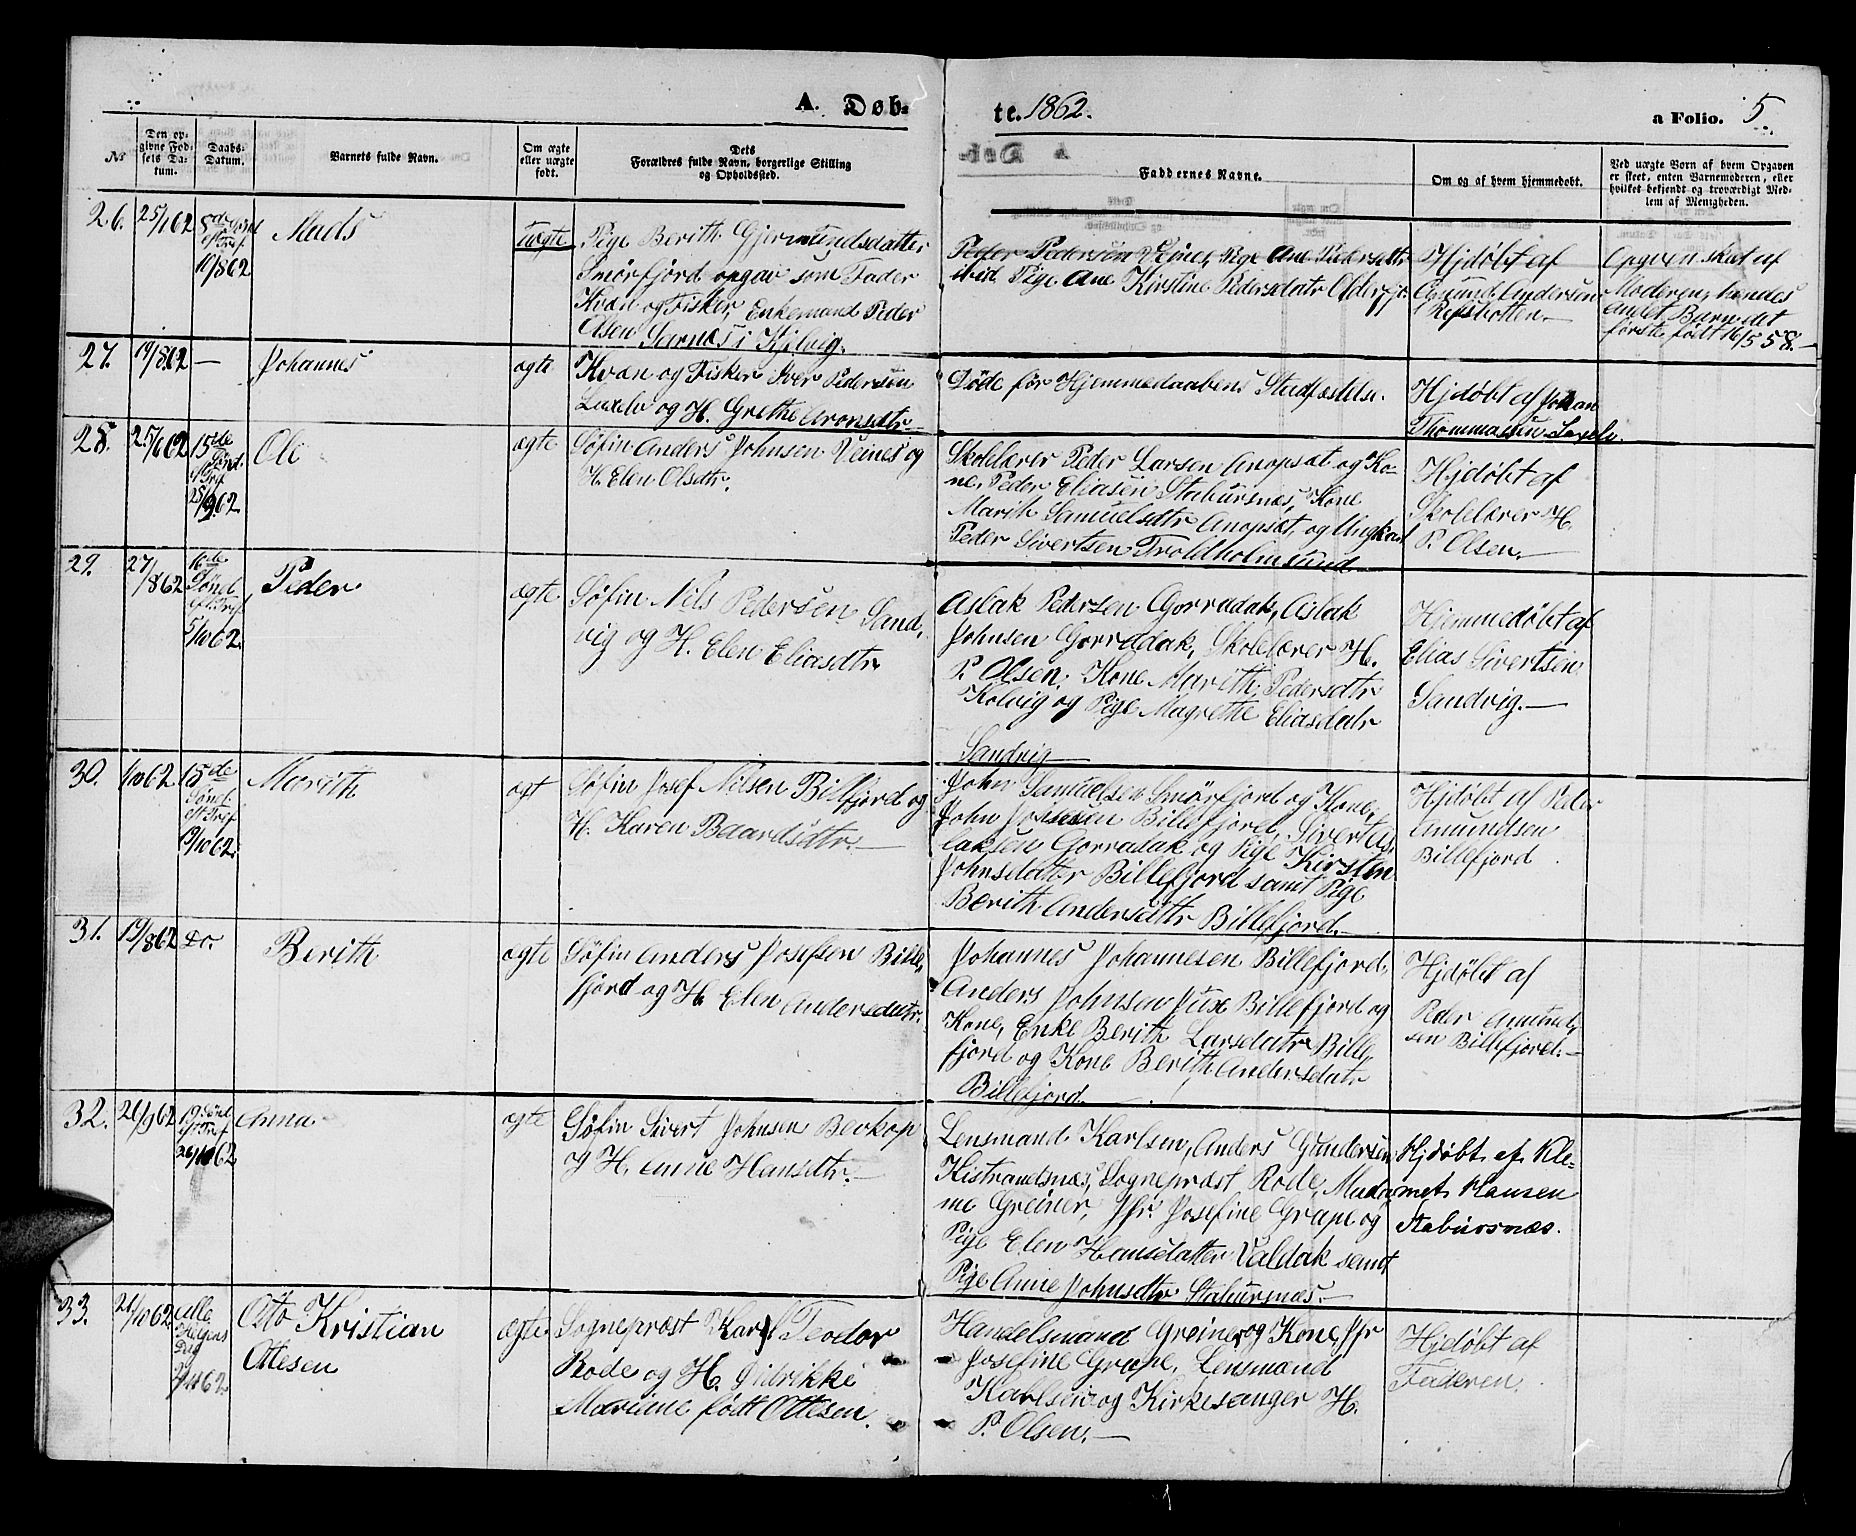 A. Døb-
te. 1862.
a Folio. 5
№
Den op-
givne Fød-
sels Da-
tum.
Daabs-
Datum.
Barnets fulde Navn.
Om ægte
eller uægte
født.
Dets
Forældres fulde Navn, borgerlige Stilling
og Opholdssted.
Faddernes Navne.
Om og af hvem hjemmedøbt.
Ved uægte Børn af hvem Opgaven
er skeet, enten Barnemoderen, eller
hvilket bekjendt og troværdigt Med-
lem af Menigheden.
26.
25/1 62
10/8 62
Mads
uægte
Pige Berith Gjermundsdatter
Smörfjord opgav som Fader
Kvæn og Fisker, Enkemand Peder
Olsen Sarnæs i Kjelvig.
Peder Pedersen Veines, Pige Ane Pedersdtr
ibid Pige Ane Kirstine Pedersdatr Olderfjr.
Hjdøbt af
Amund Andersen
Refsbotten.
Opgiven skeet af
Moderen, hendes
andet Barn det
første født 16/5 58.
27.
19/8 62
—
Johannes
ægte
Kvæn og Fisker Iver Pedersen
Laxelv og H. Grethe Aronsdtr.
Døde før Hjemmedaabens Stadfæstelse.
Hjdøbt af Johan
Thommasen Laxelv
28.
25/6 62
15de
Sønd.
eft Trf
28/9 62
Ole
ægte
Søfin Anders Johnsen Veines og
H. Elen Olsdtr.
Skolelærer Peder Larsen Anopsæt og Ko-
ne, Peder Eliasen Stabursnæs, Kone
Marith Samuelsdtr Anopsæt, og Ungkarl
Peder Sivertsen Troldholmsund
Hjdøbt af
Skolelærer H.
P. Olsen.
29.
27/8 62
16de
Sønd.
eft Trf
5/10 62
Peder
ægte
Søfin Nils Pedersen Sand,
vig og H. Elen Eliasdtr
Aslak Pedersen Gorradak, Aslak
Johnsen Gorradak, Skolelærer H.
P. Olsen, Kone Marith Pedersdtr
Kolvig og Pige Magrethe Eliasdatr
Sandvig
Hjemmedøbt af
Elias Sivertsen
Sandvig.
30.
62
18de
Sønd.
eft Trf
19/10 62.
Marith
ægt
Søfin Josef Nilsen Billefjord og
H. Karen Baardsdtr.
John Samuelsen Smörfjord og Kone,
John Johnsen Billefjord, Sivert As,
laksen Gorradak og Pige Kirsten
Johnsdatter Billefjord samt Pige
Berith Andersdtr Billefjord.
Hjdøbt af Peder
Amundsen
Billefjord
31.
19/8 62
Do.
Berith
ægte
Søfin Anders Josefsen Bille,
fjord og H. Elen Andersdatr.
Johannes Johannesen Billefjord,
Anders Johnsen Juxe Billefjord og
Kone, Enke Berith Larsdatr Bille,
fjord og Kone Berith Andersdatr
Billefjord
Hjdøbt af
Peder Amund,
sen Billefjord.
32.
21/9 62
19 Sønd
eft Trf
26/10 62
Anna
ægte
Søfin Sivert Johnsen Bevkop
og H. Anne Hansdtr.
Lensmand Karlsen, Anders Gundersen
Kistrandsnæs, Sognepræst Rode, Mada,
me Greiner, Jfr. Josefine Grape og
Pige Elen Hansdatter Valdak samt
Pige Anne Johnsdtr Stabursnæs.
Hjdøbt af Kle-
met Hansen
Stabursnæs.
33.
62
Alle
Helgens
Dag
2/11 62
Otto Kristian
Ottesen
ægte
Sognepræst Karl Teodor
Rode og H. Didrikke
Mariane født Ottesen.
Handelsmand Greiner og Kone, Jfr
Josefine Grape, Lensmand
Karlsen og Kirkesanger H.
P. Olsen.
Hjdøbt af
Faderen.